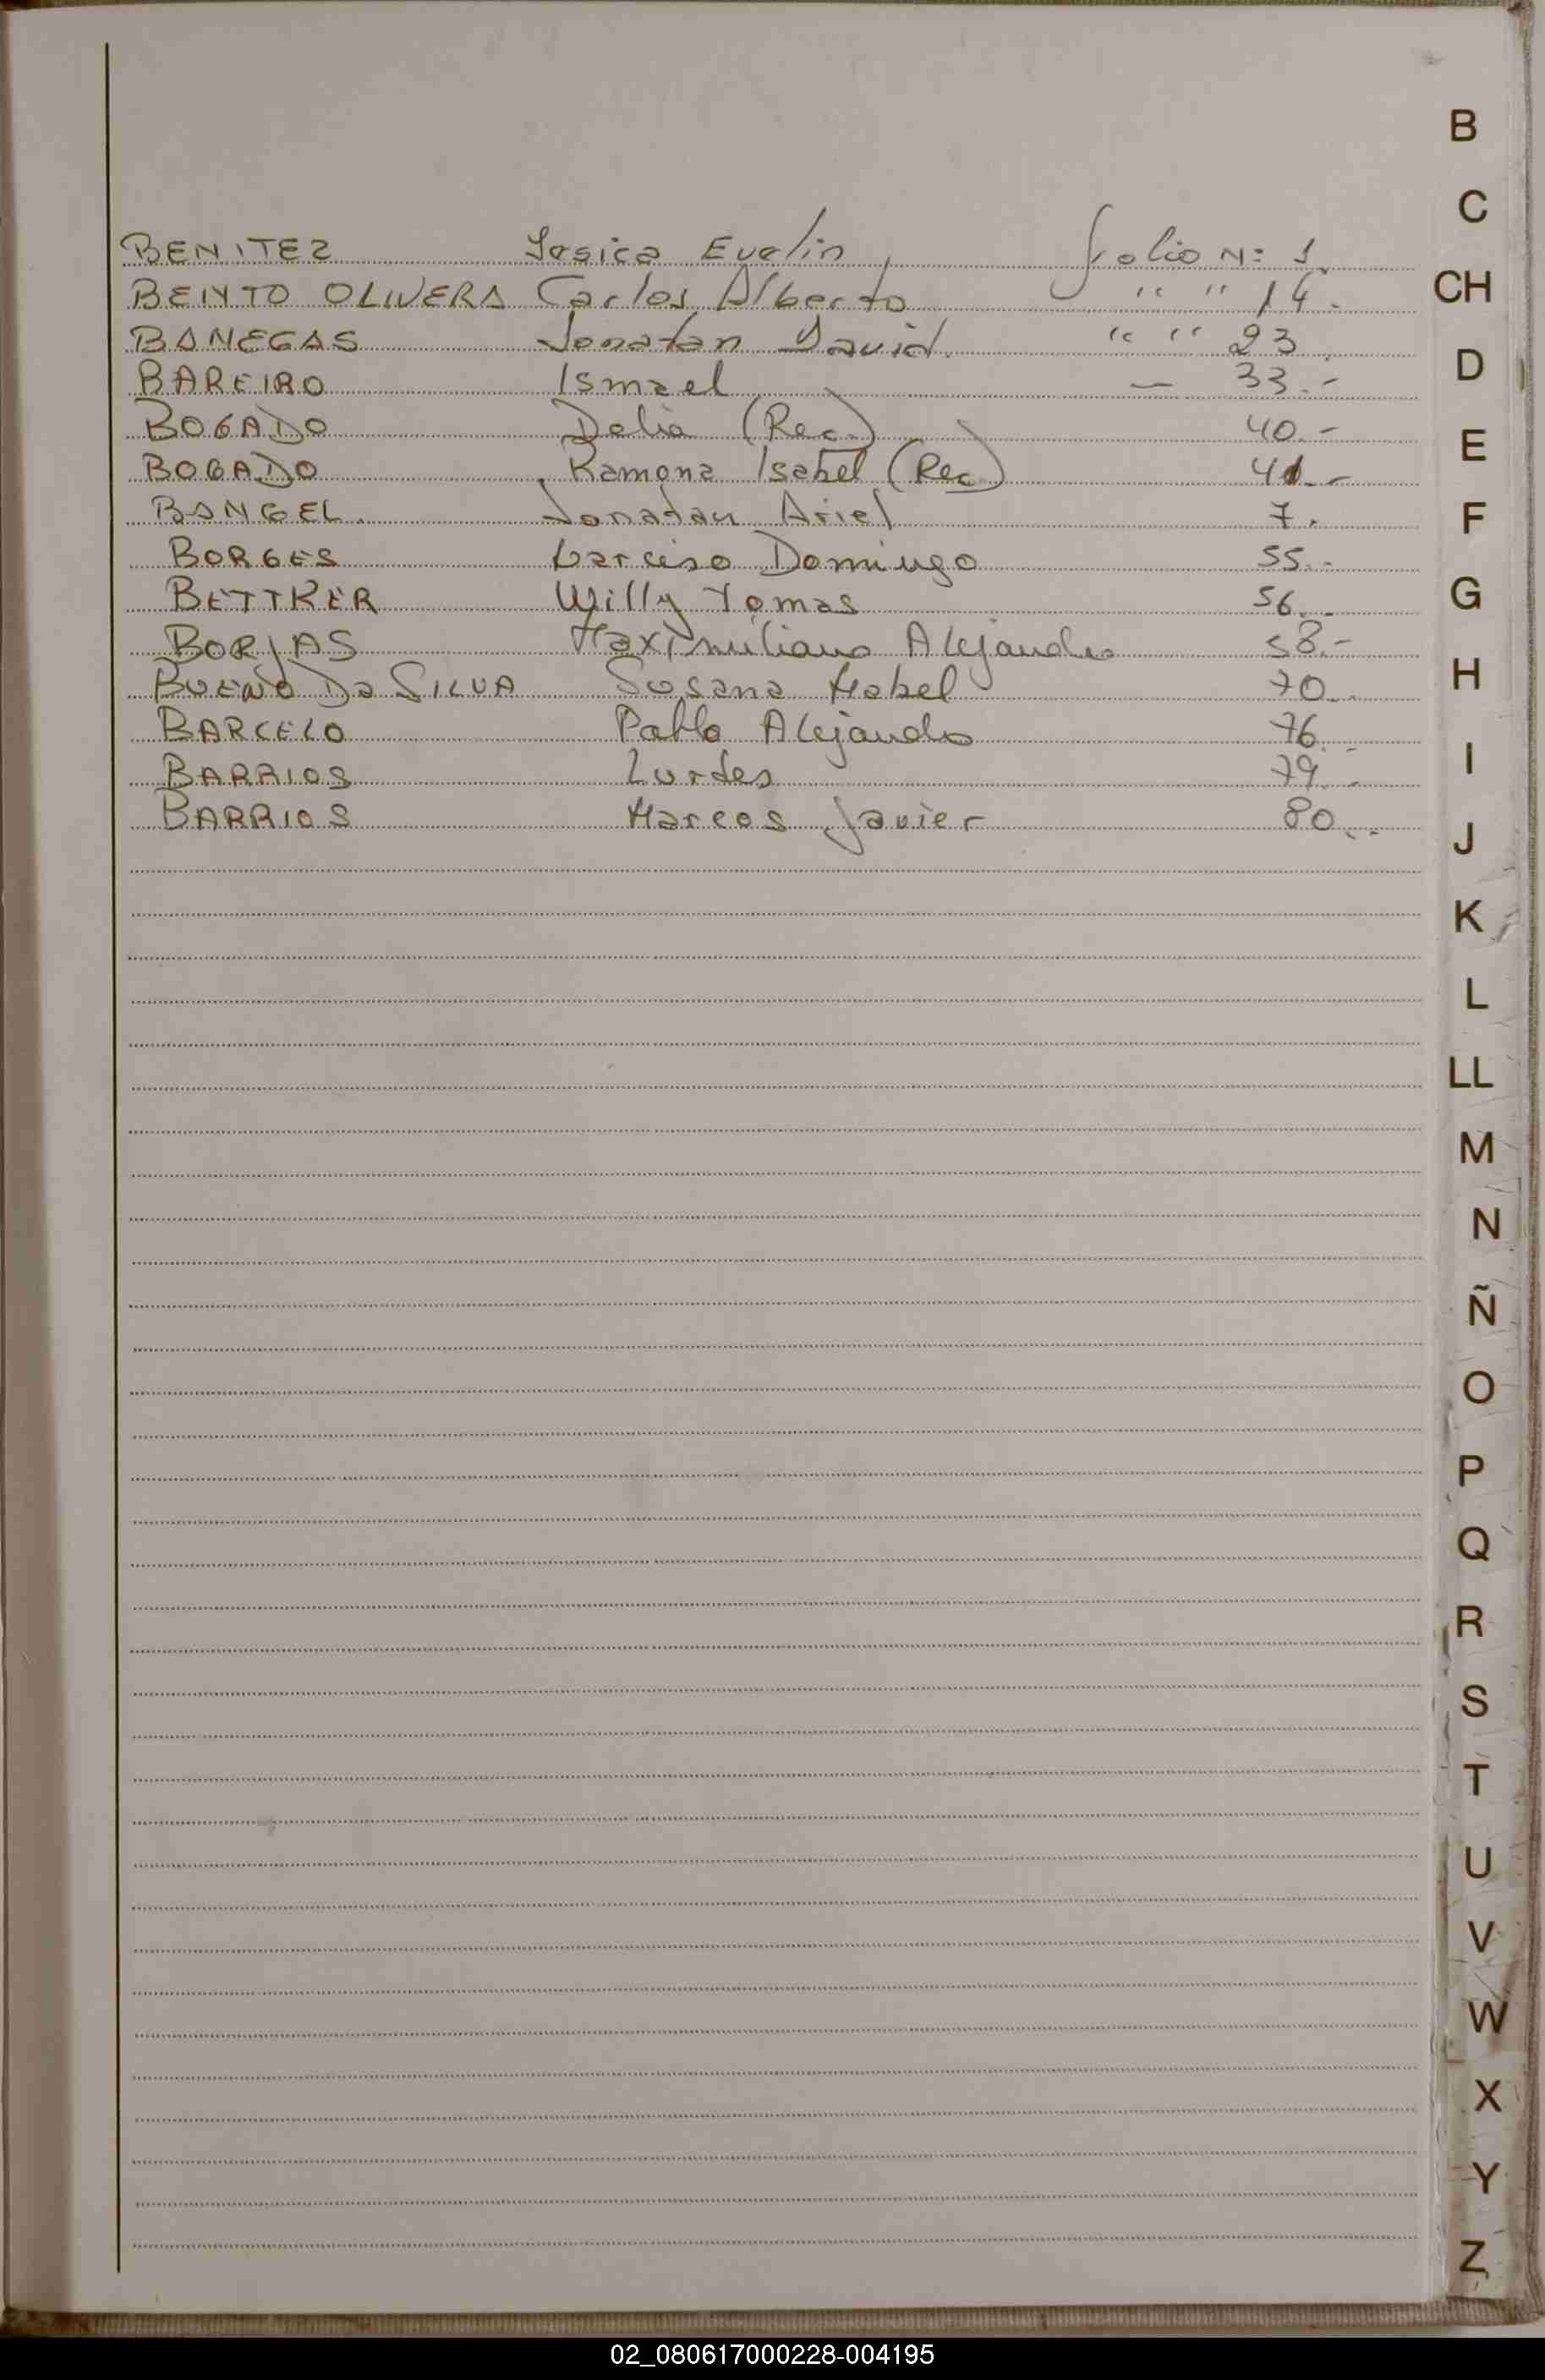 BENITEZ Yesica Evelin folio N: 1.
BENTO OLIVERA Carlos Alberto " " 14.-
BANEGAS Jonatan David. " " 23.
BAREIRO Ismael — 33.-
BOGADO Delia (Rec.) 40.-
BOGADO Ramona Isabel (Rec.) 41.-
BANGEL. Jonatan Ariel 7.
BORGES Narciso Domingo 55.-
BETTKER Willy Tomas 56.-
BORJAS Maximiliano Alejandro 58.-
BUENO DA SILVA Susana Mabel 70.-
BARCELO Pablo Alejandro 76.-
BARRIOS Lurdes 79.-
BARRIOS Marcos Javier 80.-
B
C
CH
D
E
F
G
H
I
J
K
L
LL
M
N
Ñ
O
P
Q
R
S
T
U
V
W
X
Y
Z
02_080617000228-004195